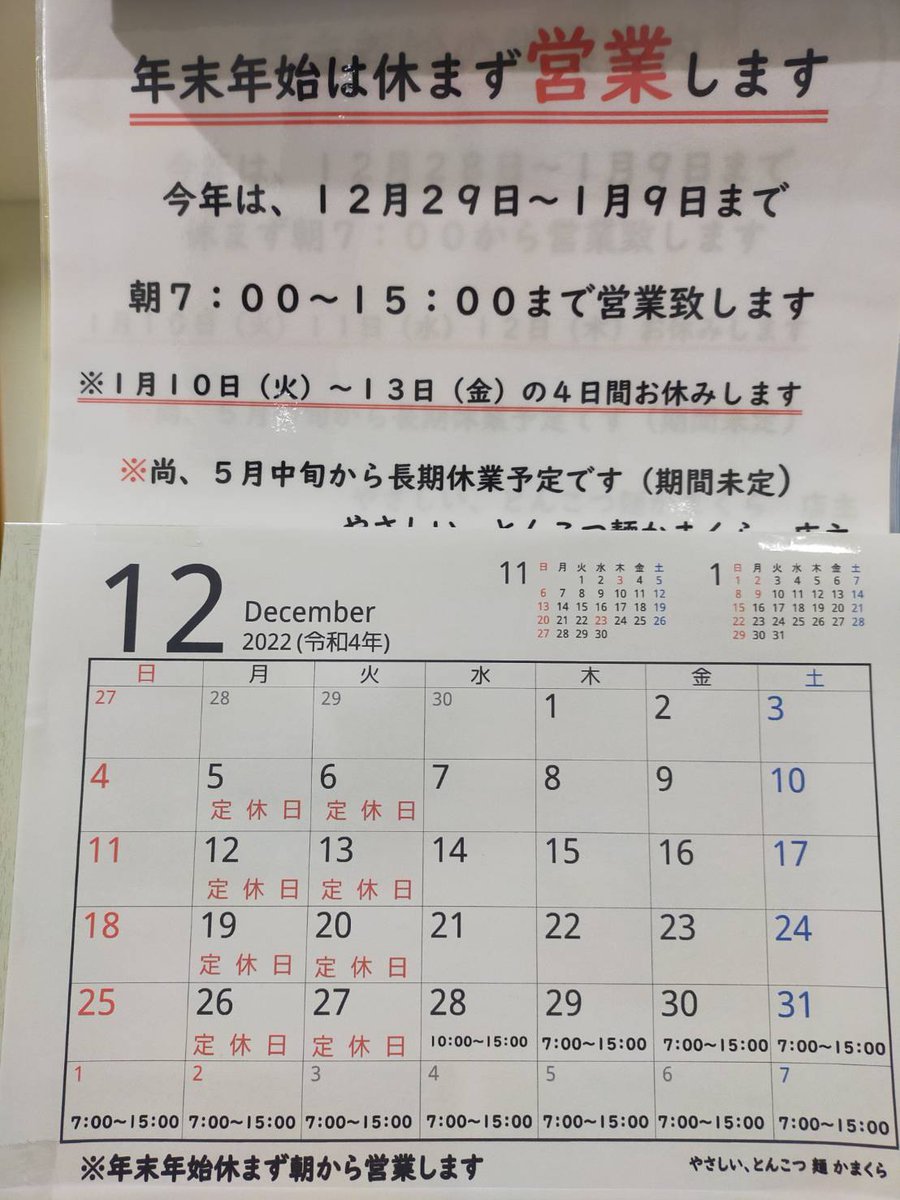 年末年始は休まず営業します
今年は、12月29日〜1月9日まで
朝7：00〜15：00まで営業致します
※1月10日（火）〜13日（金）の4日間お休みします
※尚、5月中旬から長期休業予定です（期間未定）
やさしい、とんこつ麺かまくら 店主
12
December
2022 (令和4年)
11
日 月 火 水 木 金 土
1 2 3 4 5
6 7 8 9 10 11 12
13 14 15 16 17 18 19
20 21 22 23 24 25 26
27 28 29 30
1
日 月 火 水 木 金 土
1 2 3 4 5 6 7
8 9 10 11 12 13 14
15 16 17 18 19 20 21
22 23 24 25 26 27 28
29 30 31
日 月 火 水 木 金 土
27 28 29 30 1 2 3
4 5 6 7 8 9 10
定休日 定休日
11 12 13 14 15 16 17
定休日 定休日
18 19 20 21 22 23 24
定休日 定休日
25 26 27 28 29 30 31
定休日 定休日 10:00〜15:00 7:00〜15:00 7:00〜15:00 7:00〜15:00
1 2 3 4 5 6 7
7:00〜15:00 7:00〜15:00 7:00〜15:00 7:00〜15:00 7:00〜15:00 7:00〜15:00 7:00〜15:00
※年末年始休まず朝から営業します
やさしい、とんこつ 麺 かまくら